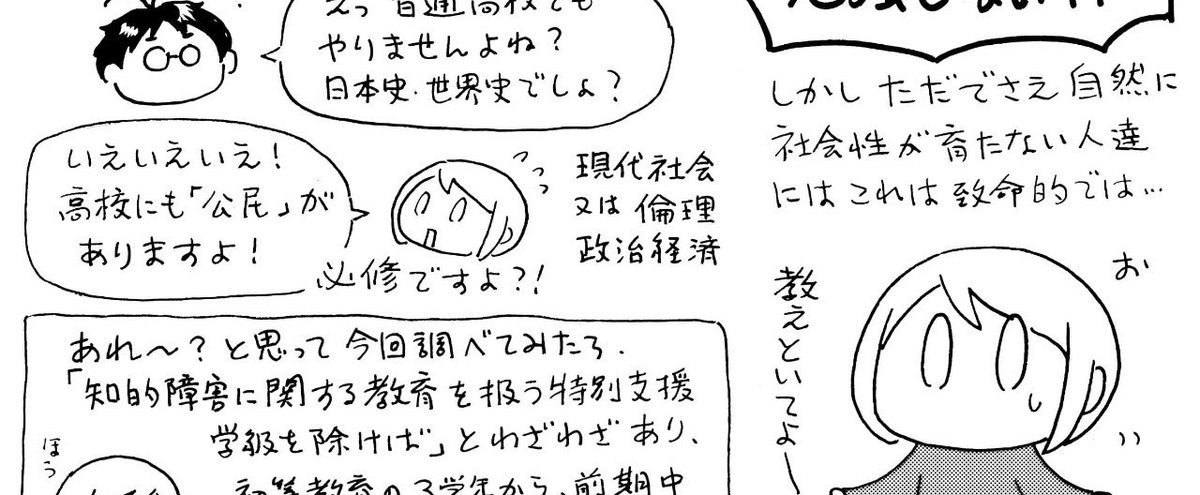 えっ 普通高校でも
やりませんよね？
日本史・世界史でしょ？
いえいえいえ！
高校にも「公民」が
ありますよ！
必修ですよ？！
っっっ
現代社会
又は倫理
政治経済
あれ〜？と思って今回調べてみたら、
「知的障害に関する教育を扱う特別支援
学級を除けば」とわざわざあり、
初等教育の3学年から、前期中
ほう
しかし ただでさえ 自然に
社会性が育たない人達
には これは致命的では…
お
教えといてよー